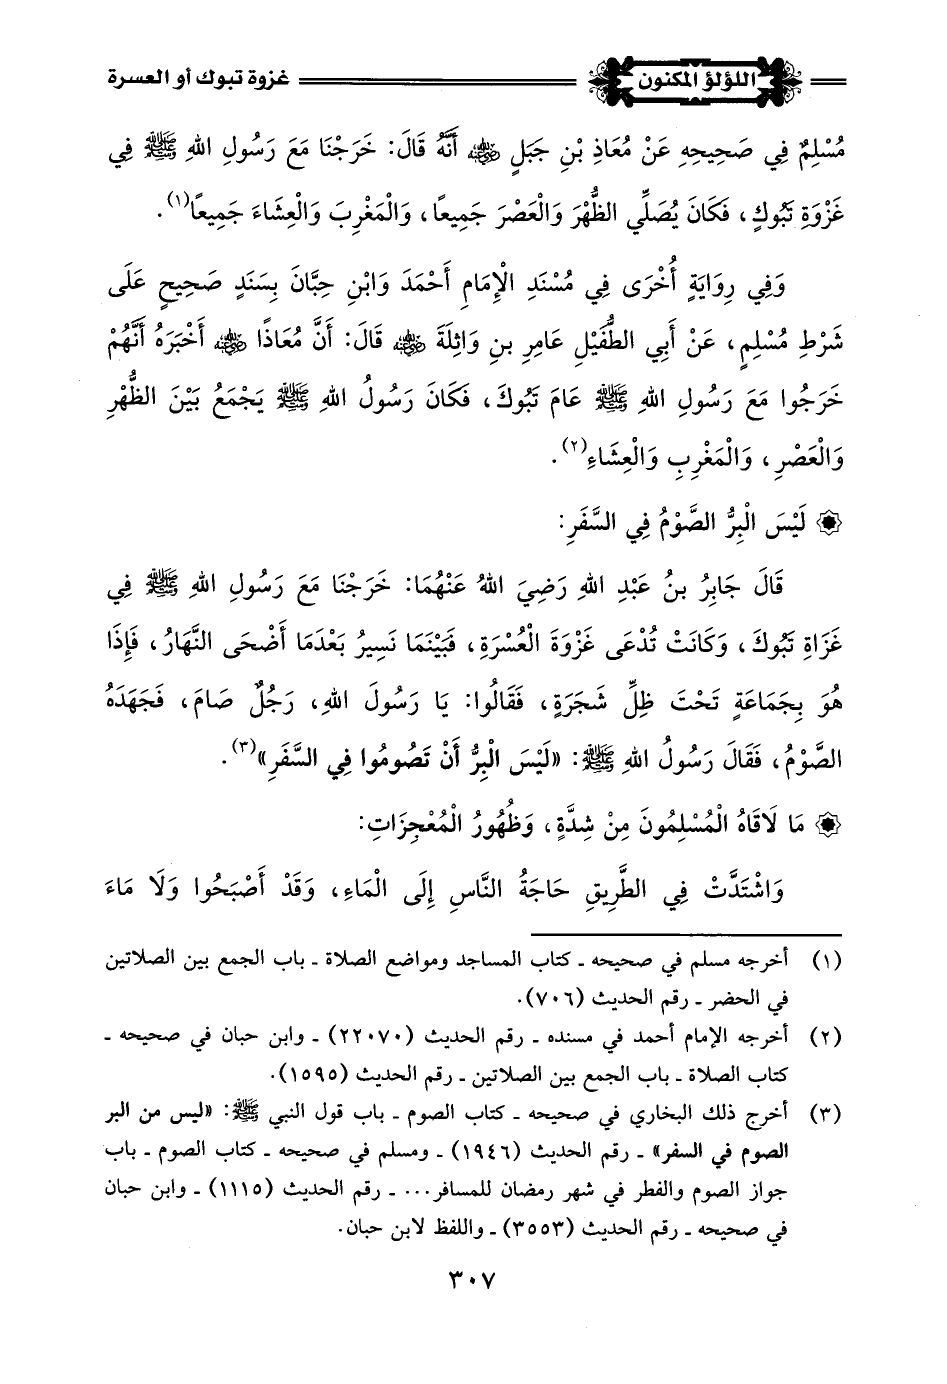 اللؤلؤ المكنون
غزوة تبوك أو العسرة
مُسْلِمٌ فِي صَحِيحِهِ عَنْ مُعَاذِ بْنِ جَبَلٍ رضي الله عنه أَنَّهُ قَالَ: خَرَجْنَا مَعَ رَسُولِ اللهِ ﷺ فِي
غَزْوَةِ تَبُوكٍ، فَكَانَ يُصَلِّي الظُّهْرَ وَالْعَصْرَ جَمِيعًا، وَالْمَغْرِبَ وَالْعِشَاءَ جَمِيعًا(١).
وَفِي رِوَايَةٍ أُخْرَى فِي مُسْنَدِ الْإِمَامِ أَحْمَدَ وَابْنِ حِبَّانَ بِسَنَدٍ صَحِيحٍ عَلَى
شَرْطِ مُسْلِمٍ، عَنْ أَبِي الطُّفَيْلِ عَامِرِ بنِ وَاثِلَةَ رضي الله عنه قَالَ: أَنَّ مُعَاذًا رضي الله عنه أَخْبَرَهُ أَنَّهُمْ
خَرَجُوا مَعَ رَسُولِ اللهِ ﷺ عَامَ تَبُوكَ، فَكَانَ رَسُولُ اللهِ ﷺ يَجْمَعُ بَيْنَ الظُّهْرِ
وَالْعَصْرِ، وَالْمَغْرِبِ وَالْعِشَاءِ(٢).
لَيْسَ الْبِرُّ الصَّوْمُ فِي السَّفَرِ:
قَالَ جَابِرُ بنُ عَبْدِ اللهِ رَضِيَ اللهُ عَنْهُمَا: خَرَجْنَا مَعَ رَسُولِ اللهِ ﷺ فِي
غَزَاةِ تَبُوكَ، وَكَانَتْ تُدْعَى غَزْوَةَ الْعُسْرَةِ، فَبَيْنَمَا نَسِيرُ بَعْدَمَا أَضْحَى النَّهَارُ، فَإِذَا
هُوَ بِجَمَاعَةٍ تَحْتَ ظِلِّ شَجَرَةٍ، فَقَالُوا: يَا رَسُولَ اللهِ، رَجُلٌ صَامَ، فَجَهَدَهُ
الصَّوْمُ، فَقَالَ رَسُولُ اللهِ ﷺ: «لَيْسَ الْبِرُّ أَنْ تَصُومُوا فِي السَّفَرِ»(٣).
مَا لَاقَاهُ الْمُسْلِمُونَ مِنْ شِدَّةٍ، وَظُهُورُ الْمُعْجِزَاتِ:
وَاشْتَدَّتْ فِي الطَّرِيقِ حَاجَةُ النَّاسِ إِلَى الْمَاءِ، وَقَدْ أَصْبَحُوا وَلَا مَاءَ
(١) أخرجه مسلم في صحيحه ـ كتاب المساجد ومواضع الصلاة ـ باب الجمع بين الصلاتين
في الحضر ـ رقم الحديث (٧٠٦).
(٢) أخرجه الإمام أحمد في مسنده ـ رقم الحديث (٢٢٠٧٠) ـ وابن حبان في صحيحه ـ
كتاب الصلاة ـ باب الجمع بين الصلاتين ـ رقم الحديث (١٥٩٥).
(٣) أخرج ذلك البخاري في صحيحه ـ كتاب الصوم ـ باب قول النبي ﷺ: «ليس من البر
الصوم في السفر» ـ رقم الحديث (١٩٤٦) ـ ومسلم في صحيحه ـ كتاب الصوم ـ باب
جواز الصوم والفطر في شهر رمضان للمسافر... ـ رقم الحديث (١١١٥) ـ وابن حبان
في صحيحه ـ رقم الحديث (٣٥٥٣) ـ واللفظ لابن حبان.
٣٠٧